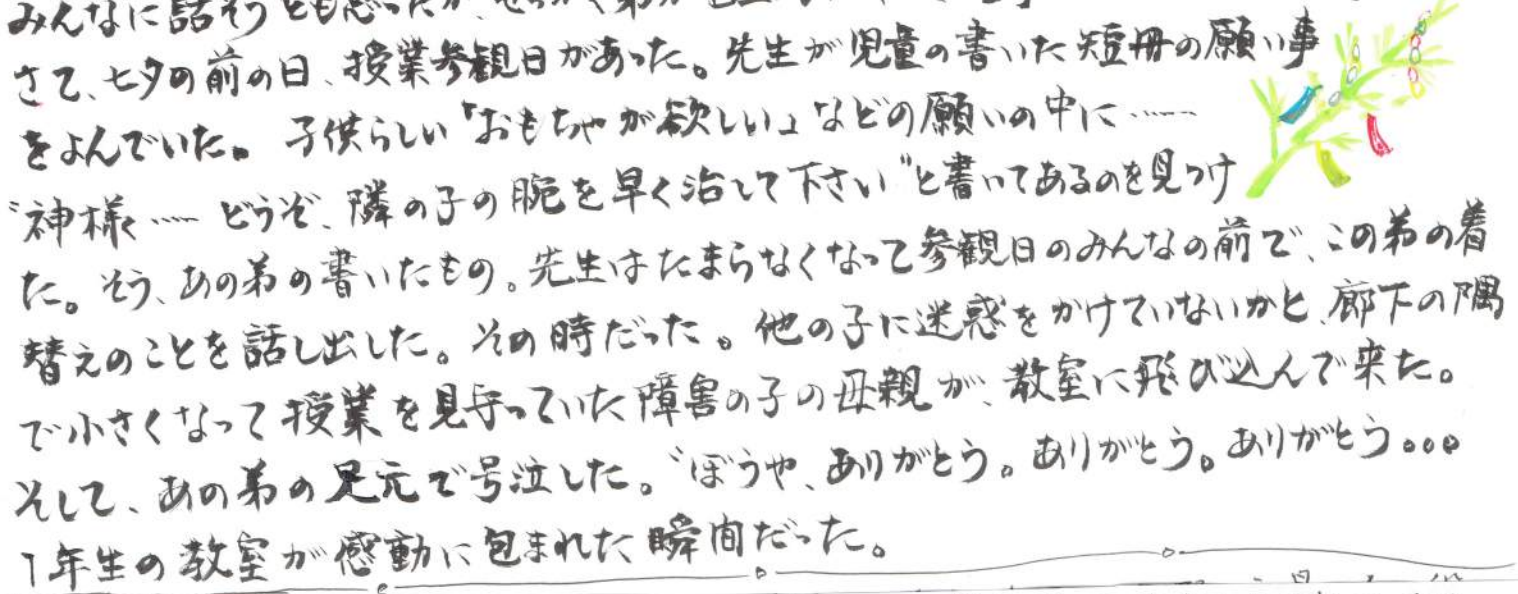 みんなに話そうとも思ったが、せっかく弟が
さて、七夕の前の日、授業参観日があった。先生が児童の書いた短冊の願い事
をよんでいた。子供らしい「おもちゃが欲しい」などの願いの中に……
“神様……どうぞ、隣の子の腕を早く治して下さい”と書いてあるのを見つけ
た。そう、あの弟の書いたもの。先生はたまらなくなって参観日のみんなの前で、この弟の着
替えのことを話し出した。その時だった。他の子に迷惑をかけていないかと、廊下の隅
で小さくなって授業を見守っていた障害の子の母親が、教室に飛び込んで来た。
そして、あの弟の足元で号泣した。“ぼうや、ありがとう。ありがとう。ありがとう。。。
1年生の教室が感動に包まれた瞬間だった。